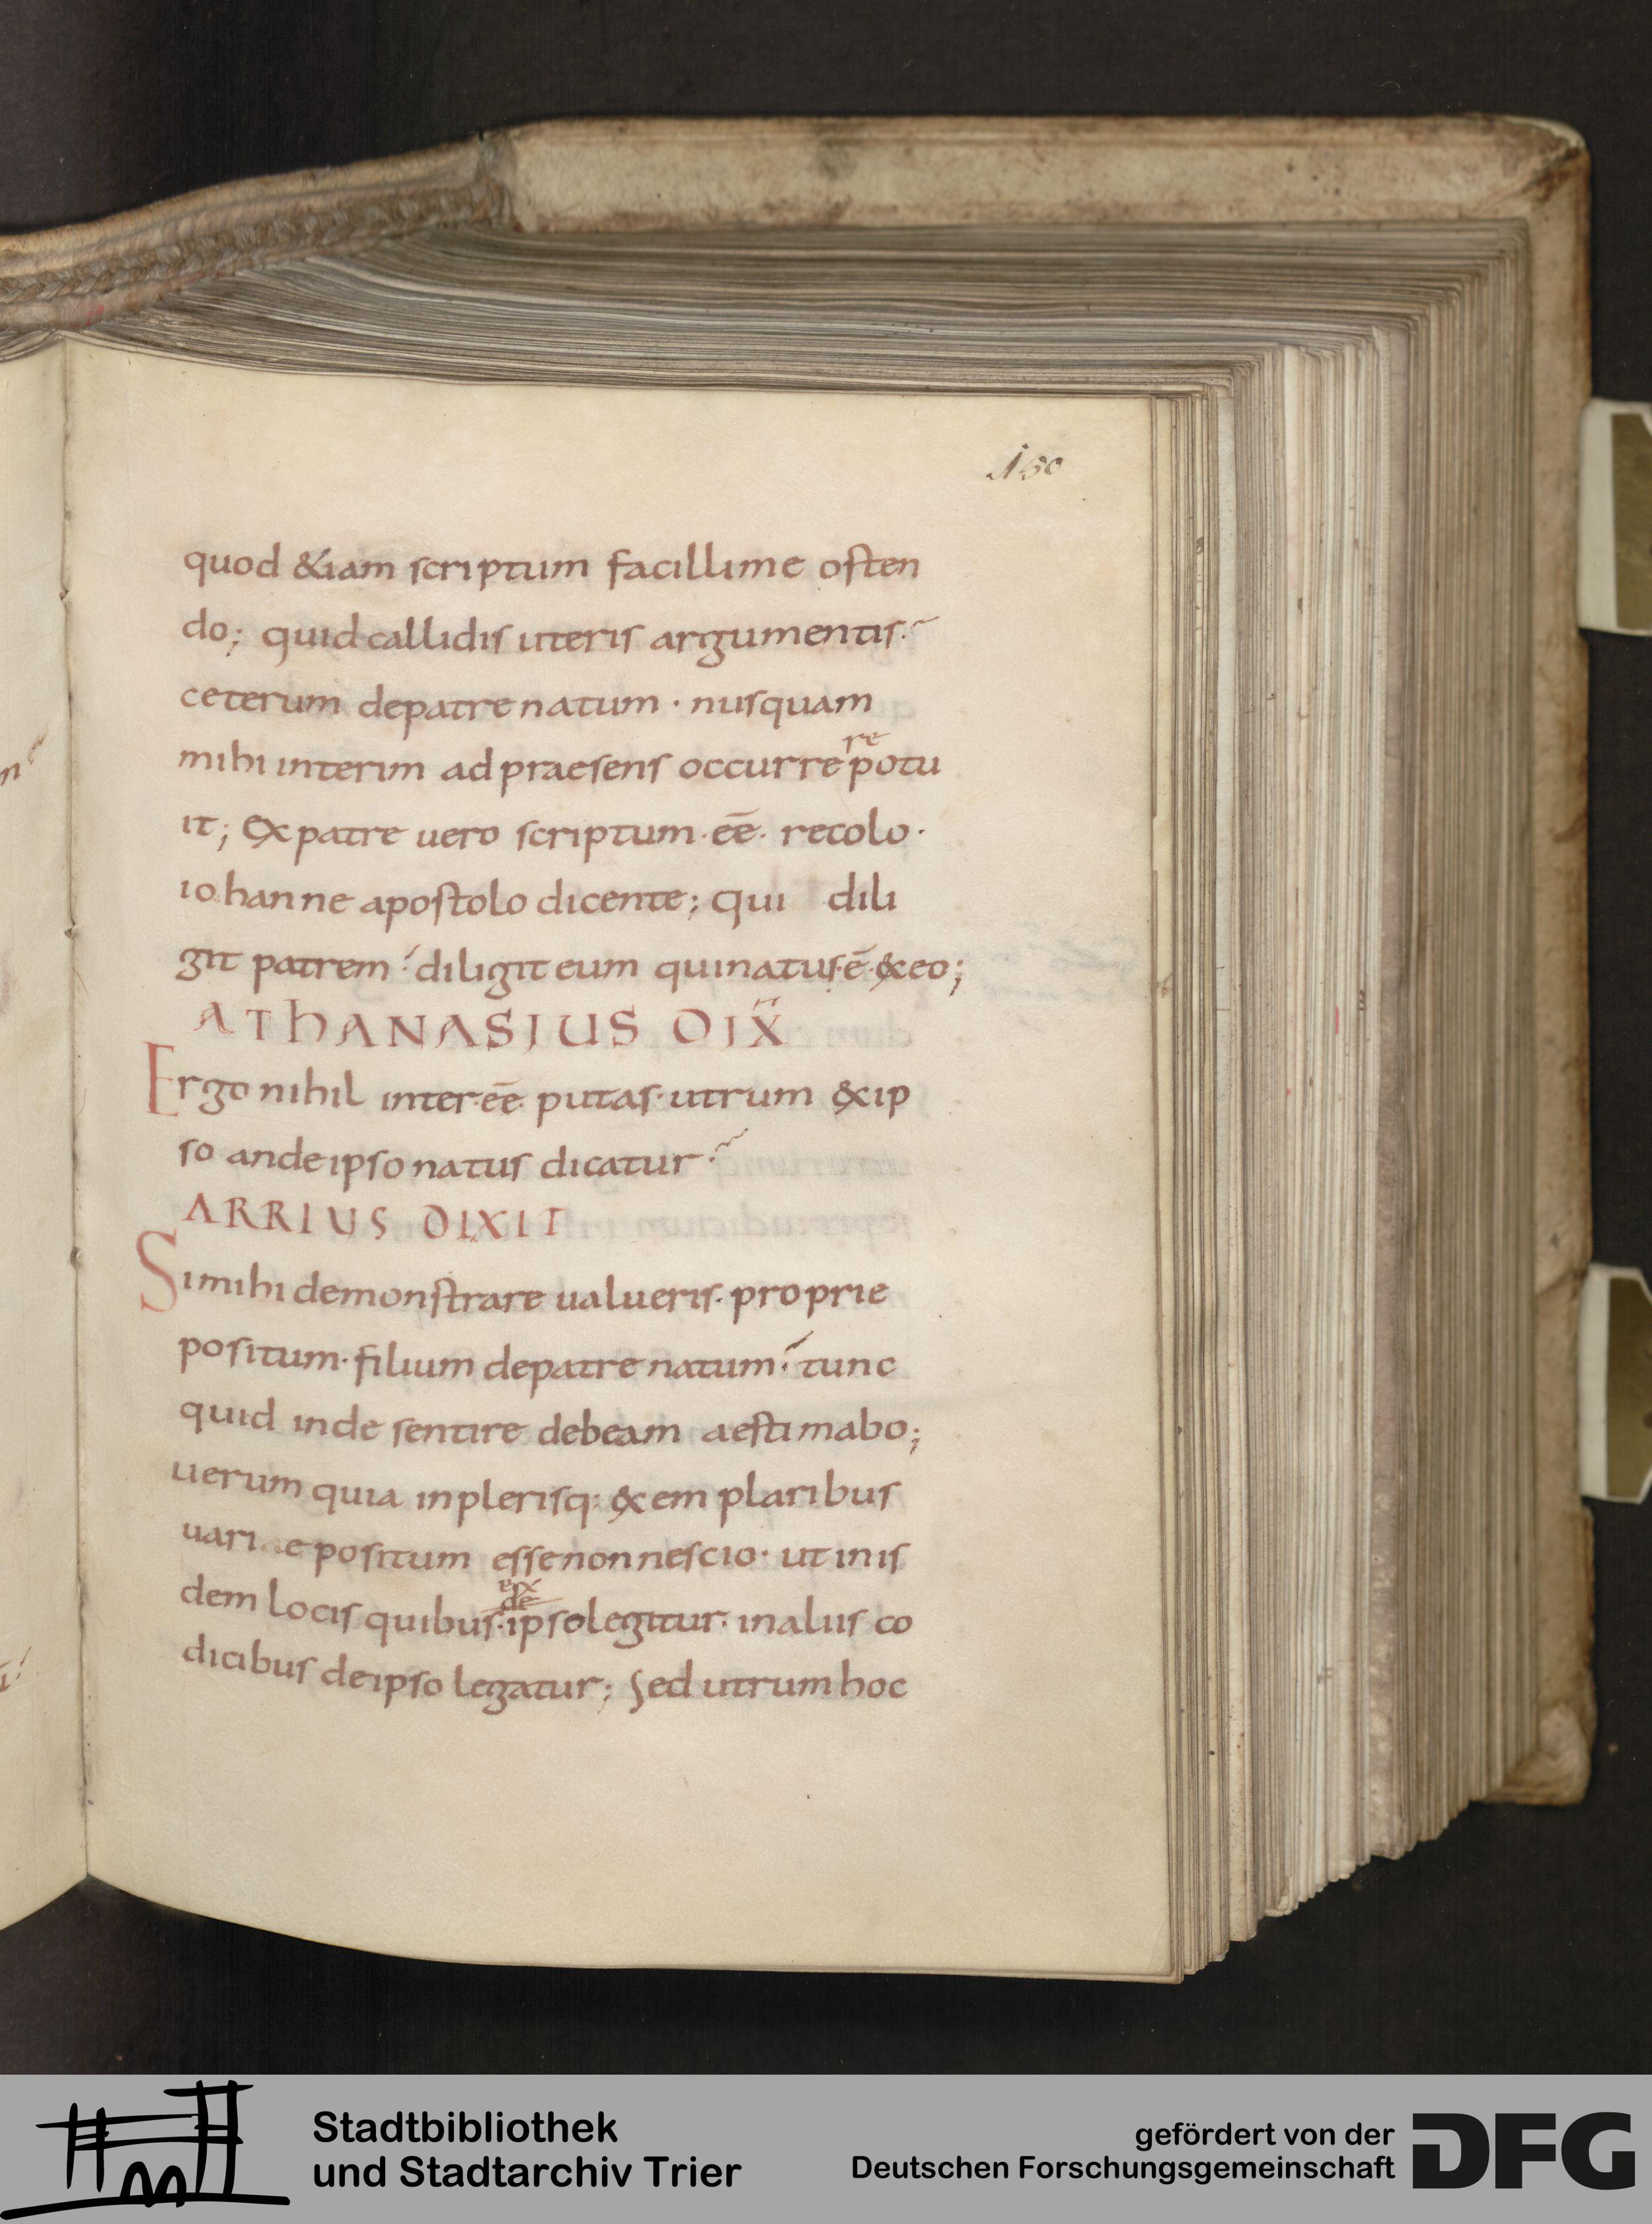 150
quod &iam scriptum facillime osten
do; quid callidis uteris argumentis·
ceterum depatre natum · nusquam
re
mihi interim ad praesens occurre potu
it; Ex patre uero scriptum·eē· recolo·
iohanne apostolo dicente; qui dili
git patrem· diligit eum qui natus·ē·&eo;
ATHANASIUS DIX̄
Ergo nihil inter·eē· putas· utrum &ip
so an de ipso natus dicatur·
ARRIUS DIXIT
Si mihi demonstrare ualueris· proprie
positum· filium depatre natum· tunc
quid inde sentire debeam aestimabo;
uerum quia in plerisq: &emplaribus
uari e positum esse non nescio· ut in is
ex
de
dem locis quibus· ipso legitur· in aliis co
dicibus de ipso legatur; Sed utrum hoc
Stadtbibliothek
und Stadtarchiv Trier
gefördert von der
Deutschen Forschungsgemeinschaft
DFG